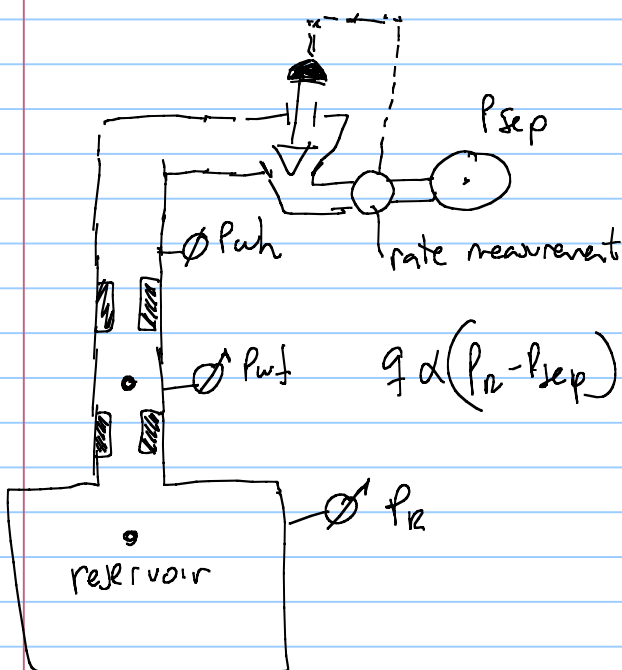 Psep
Pwh
rate measurement
Pwf
q α (PR - Psep)
PR
reservoir